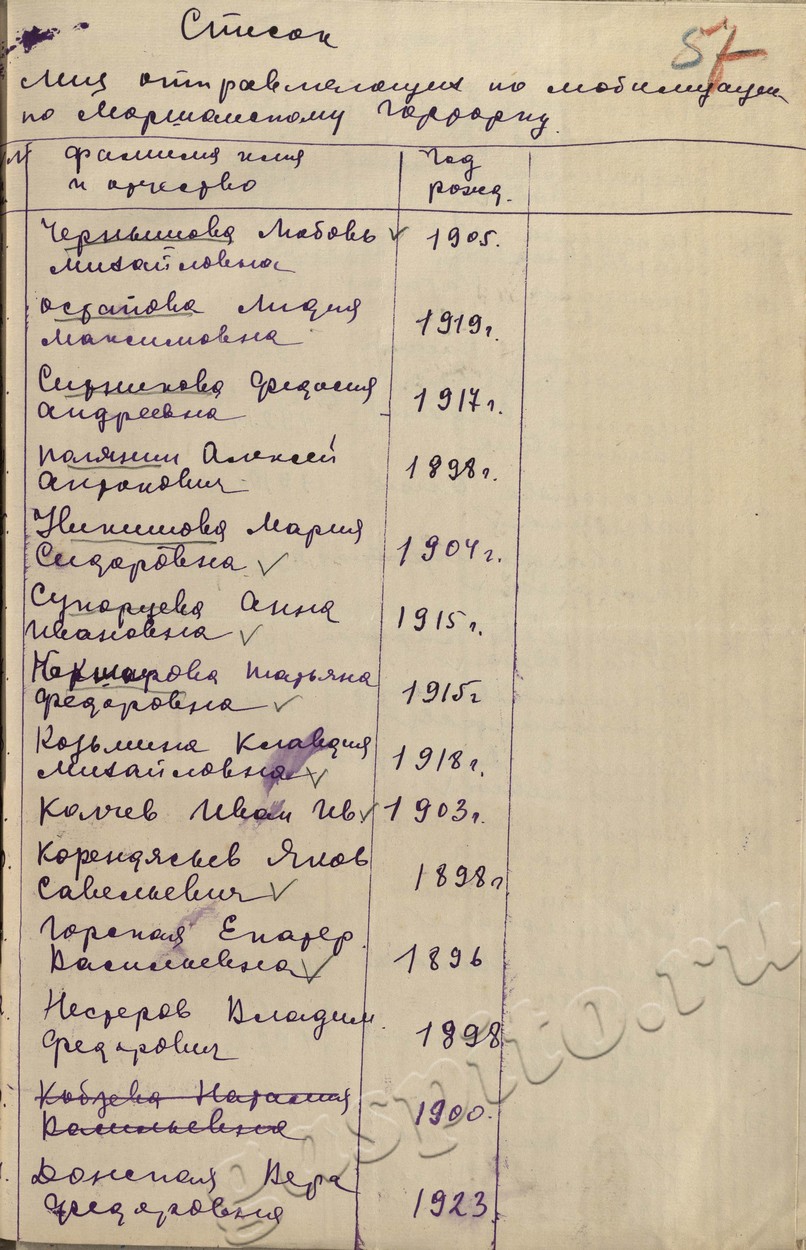 Список
57
лиц отправляющих по мобилизации
по Моршанскому Горфорку.
№ фамилия имя Год
и отчество рожд.
Чернышова Любовь ✓ 1905.
Михайловна
Остапова Лидия
Максимовна 1919г.
Ситникова Федосия
Андреевна 1917г.
Полянин Алексей
Антонович 1898г.
Никишова Мария
Сидоровна ✓ 1904г.
Супорцева Анна
Ивановна ✓ 1915г.
Татьяна
Федоровна ✓ 1915г
Козьмина Клавдия
Михайловна ✓ 1918г.
Колчев Иван Ив ✓ 1903г.
Корендясьев Яков
Савельевич ✓ 1898г
Горская Екатер.
Васильевна ✓ 1896
Нестеров Владим.
Федорович 1898
Кобзева Наталия
Васильевна 1900.
Донская Вера
Федоровна 1923.
gaspito.ru